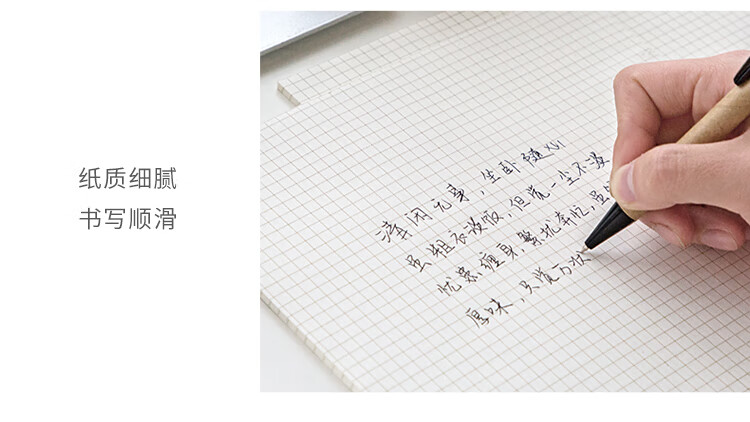 纸质细腻
书写顺滑
清闲无事，坐卧随心
虽粗衣淡饭，但觉一尘不染
忧患缠身，繁扰奔忙，虽
厚味，只觉万状